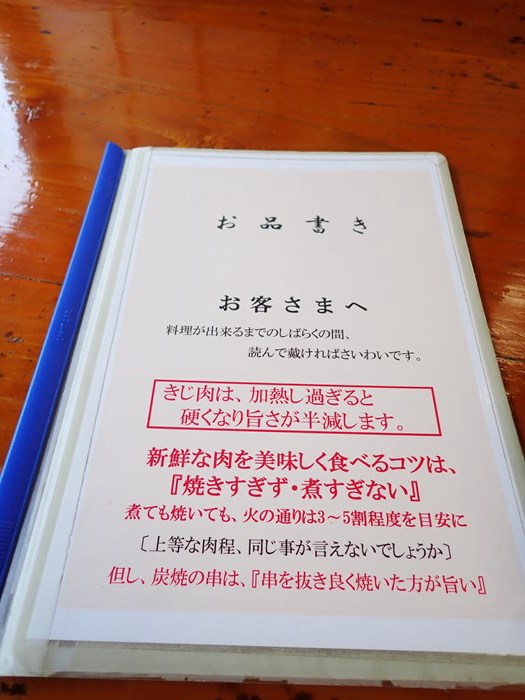 お品書き
お客さまへ
料理が出来るまでのしばらくの間、
読んで戴ければさいわいです。
きじ肉は、加熱し過ぎると
硬くなり旨さが半減します。
新鮮な肉を美味しく食べるコツは、
『焼きすぎず・煮すぎない』
煮ても焼いても、火の通りは3～5割程度を目安に
〔上等な肉程、同じ事が言えないでしょうか〕
但し、炭焼の串は、『串を抜き良く焼いた方が旨い』